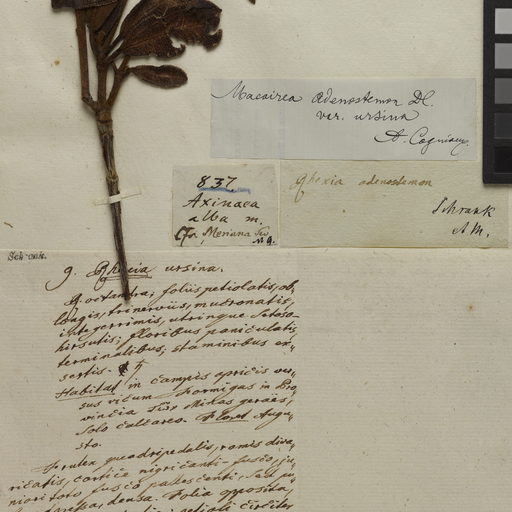 Macairea adenostemon DC.
var. ursina
A. Cogniaux
837
Axinaea
alba m.
Meriana
N 9.
Rhexia adenostemon
Schrank
A M.
Schrank.
9. Rhexia ursina.
R. octandra; foliis petiolatis, ob,
longis, trinerviis, mucronatis,
integerrimis, utrinque setoso-
hirsutis; floribus paniculatis
terminalibus; staminibus ex,
sertis. ♄
Habitat in campis apricis ver,
sus vicum Formigas in Pro,
vincia Minas geraës,
Solo calcareo. Floret Augu,
sto.
Frutex quadripedalis, ramis diva,
ricatis, cortice nigricanti-fusco, ju,
niori toto fusco pallescenti,
densa. Folia opposita
petioli circiter